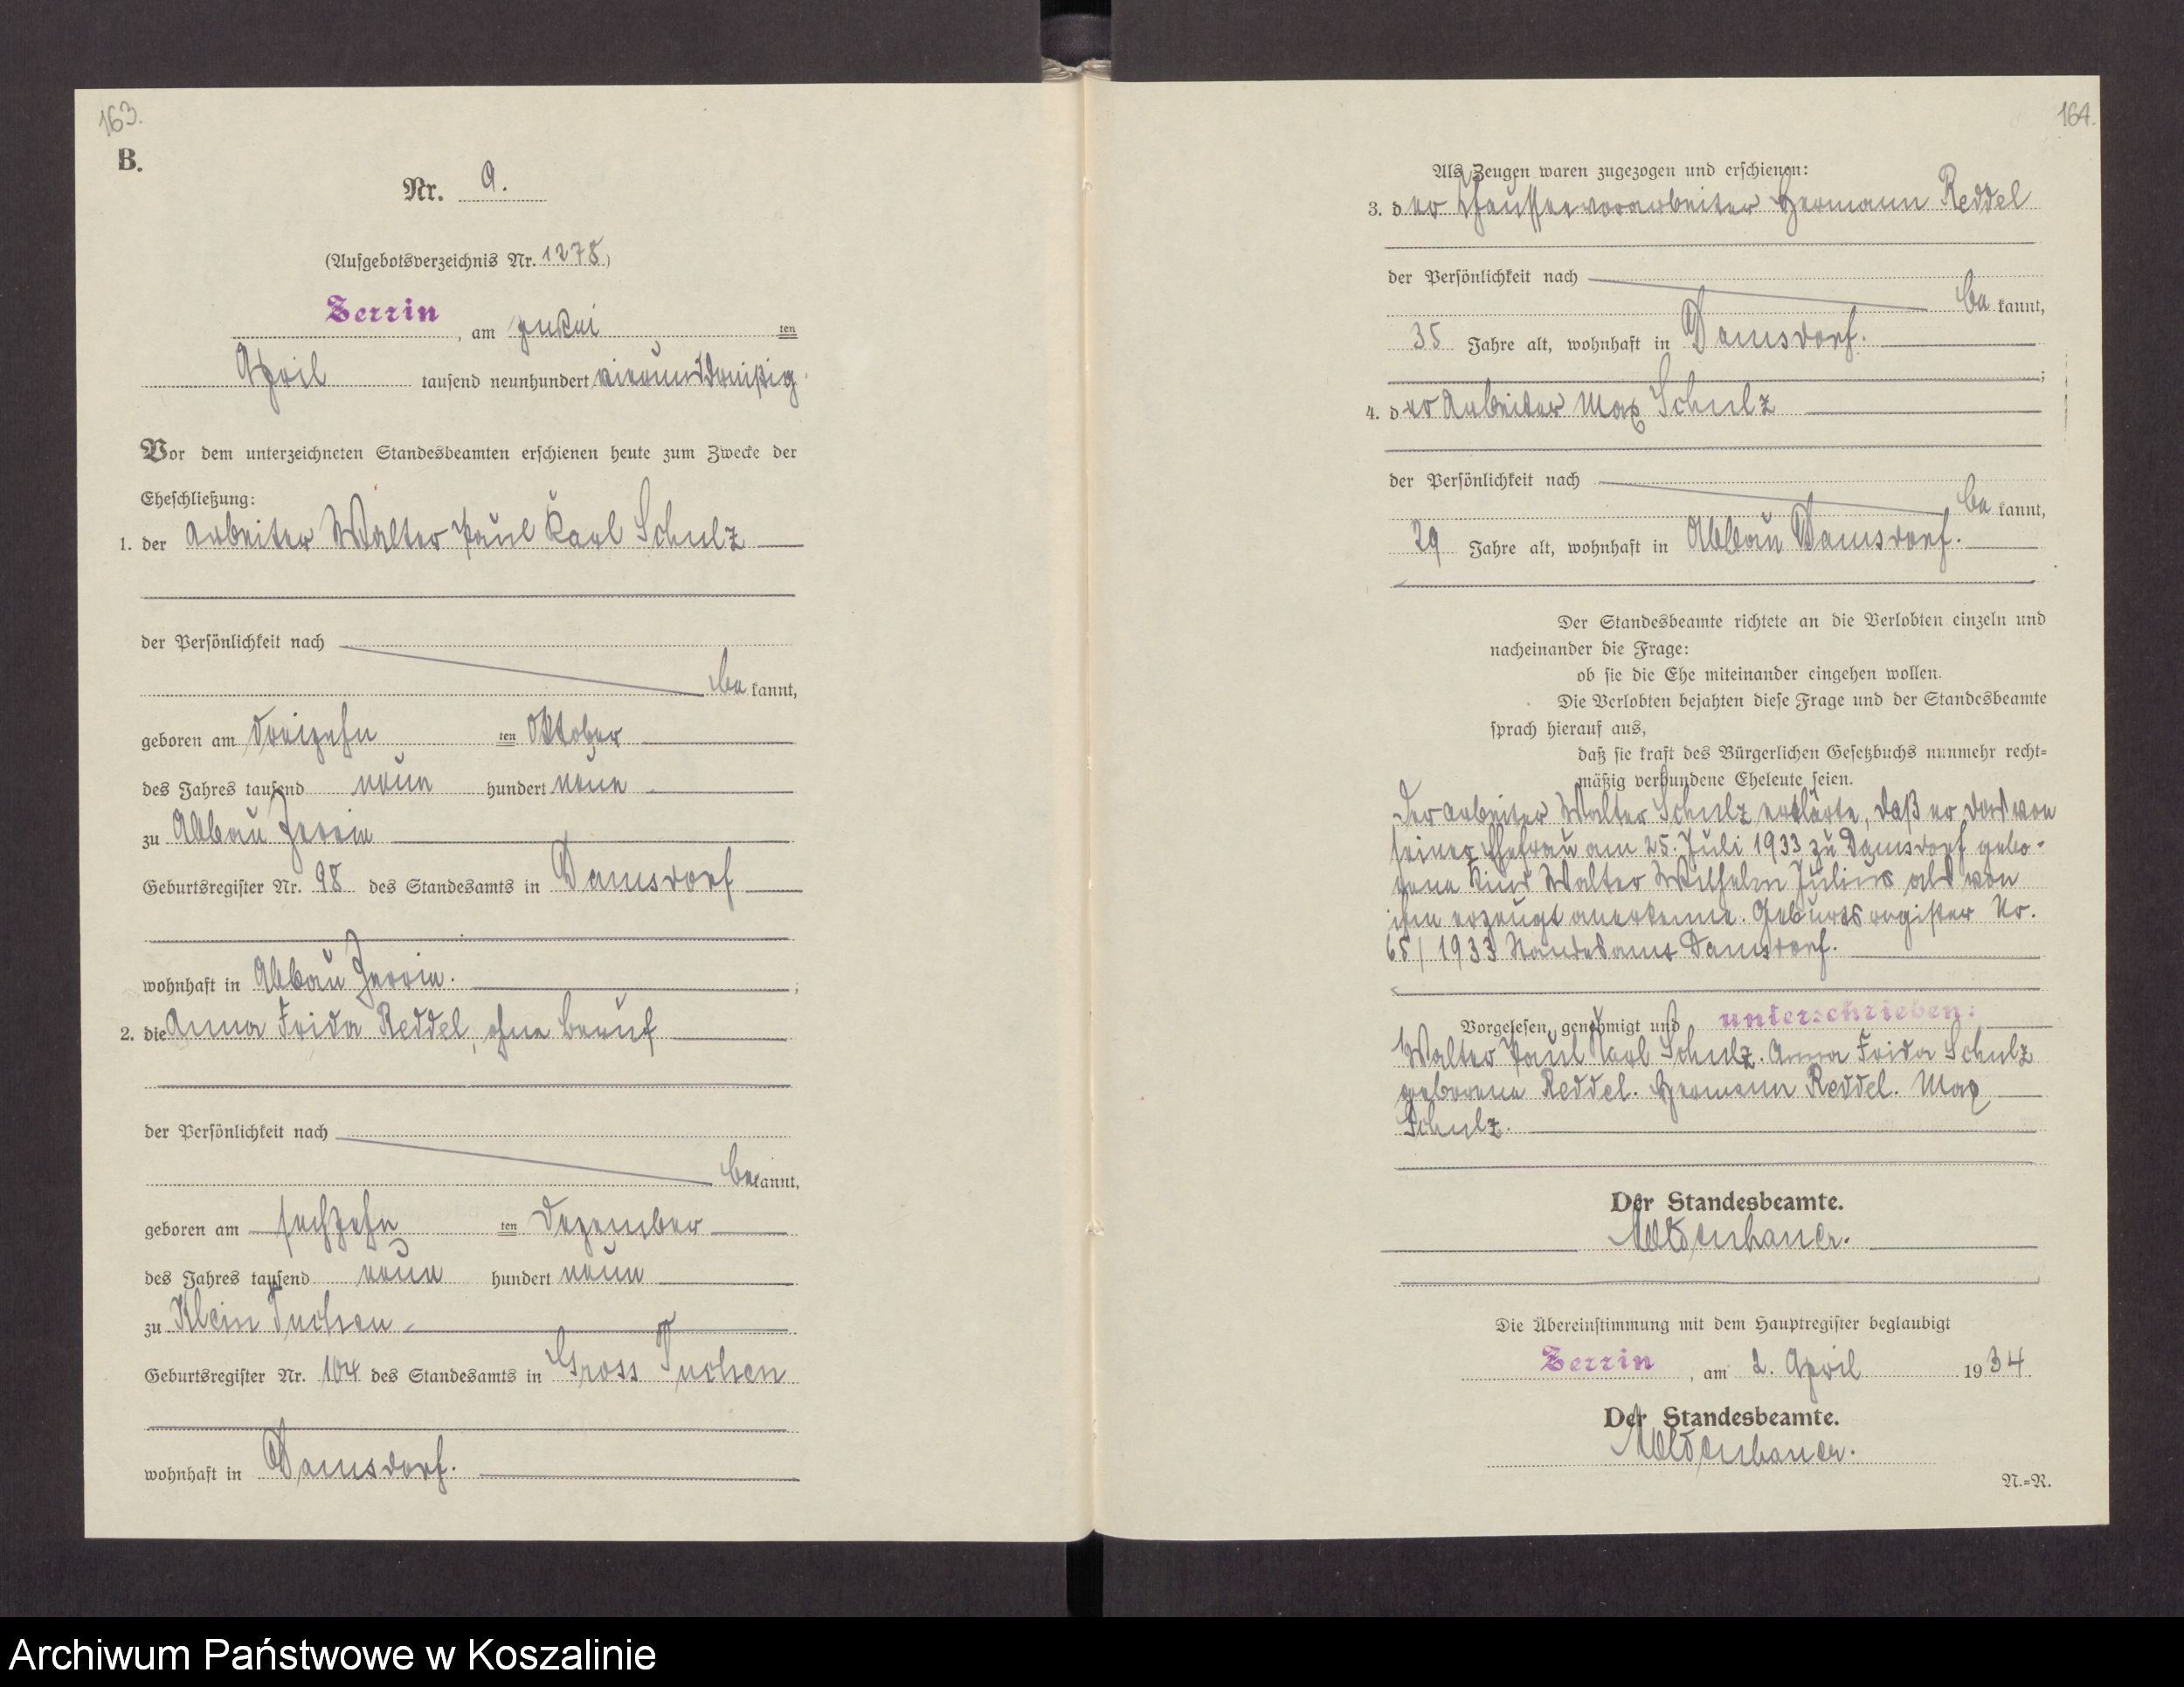 163.
B.
Nr. 9.
(Aufgebotsverzeichnis Nr. 1278)
Zerrin, am zweiten
April tausend neunhundert vierunddreißig.
Vor dem unterzeichneten Standesbeamten erschienen heute zum Zwecke der
Eheschließung:
1. der Arbeiter Walter Paul Karl Schulz
der Persönlichkeit nach
bekannt,
geboren am dreizehnten Oktober
des Jahres tausend neun hundert neun
zu Abbau Zerrin
Geburtsregister Nr. 98 des Standesamts in Damsdorf
wohnhaft in Abbau Zerrin. ;
2. die Anna Frida Reddel, ohne Beruf
der Persönlichkeit nach
bekannt,
geboren am sechzehnten Dezember
des Jahres tausend neun hundert neun
zu Klein Tuchen
Geburtsregister Nr. 104 des Standesamts in Gross Tuchen
wohnhaft in Damsdorf.
164.
Als Zeugen waren zugezogen und erschienen:
3. der Chausseevorarbeiter Hermann Reddel
der Persönlichkeit nach
bekannt,
35 Jahre alt, wohnhaft in Damsdorf.
;
4. der Arbeiter Max Schulz
der Persönlichkeit nach
bekannt,
29 Jahre alt, wohnhaft in Abbau Damsdorf.
Der Standesbeamte richtete an die Verlobten einzeln und
nacheinander die Frage:
ob sie die Ehe miteinander eingehen wollen.
Die Verlobten bejahten diese Frage und der Standesbeamte
sprach hierauf aus,
daß sie kraft des Bürgerlichen Gesetzbuchs nunmehr recht=
mäßig verbundene Eheleute seien.
Der Arbeiter Walter Schulz erklärte, daß er das von
seiner Ehefrau am 25. Juli 1933 zu Damsdorf gebo-
rene Kind Walter Wilhelm Julius als von
ihm erzeugt anerkenne. Geburtsregister Nr.
65/1933 Standesamt Damsdorf.
Vorgelesen, genehmigt und unterschrieben:
Walter Paul Karl Schulz. Anna Frida Schulz
geborene Reddel. Hermann Reddel. Max
Schulz.
Der Standesbeamte.
Moldenhauer.
Die Übereinstimmung mit dem Hauptregister beglaubigt
Zerrin, am 2. April 1934
Der Standesbeamte.
Moldenhauer.
N.=R.
Archiwum Państwowe w Koszalinie